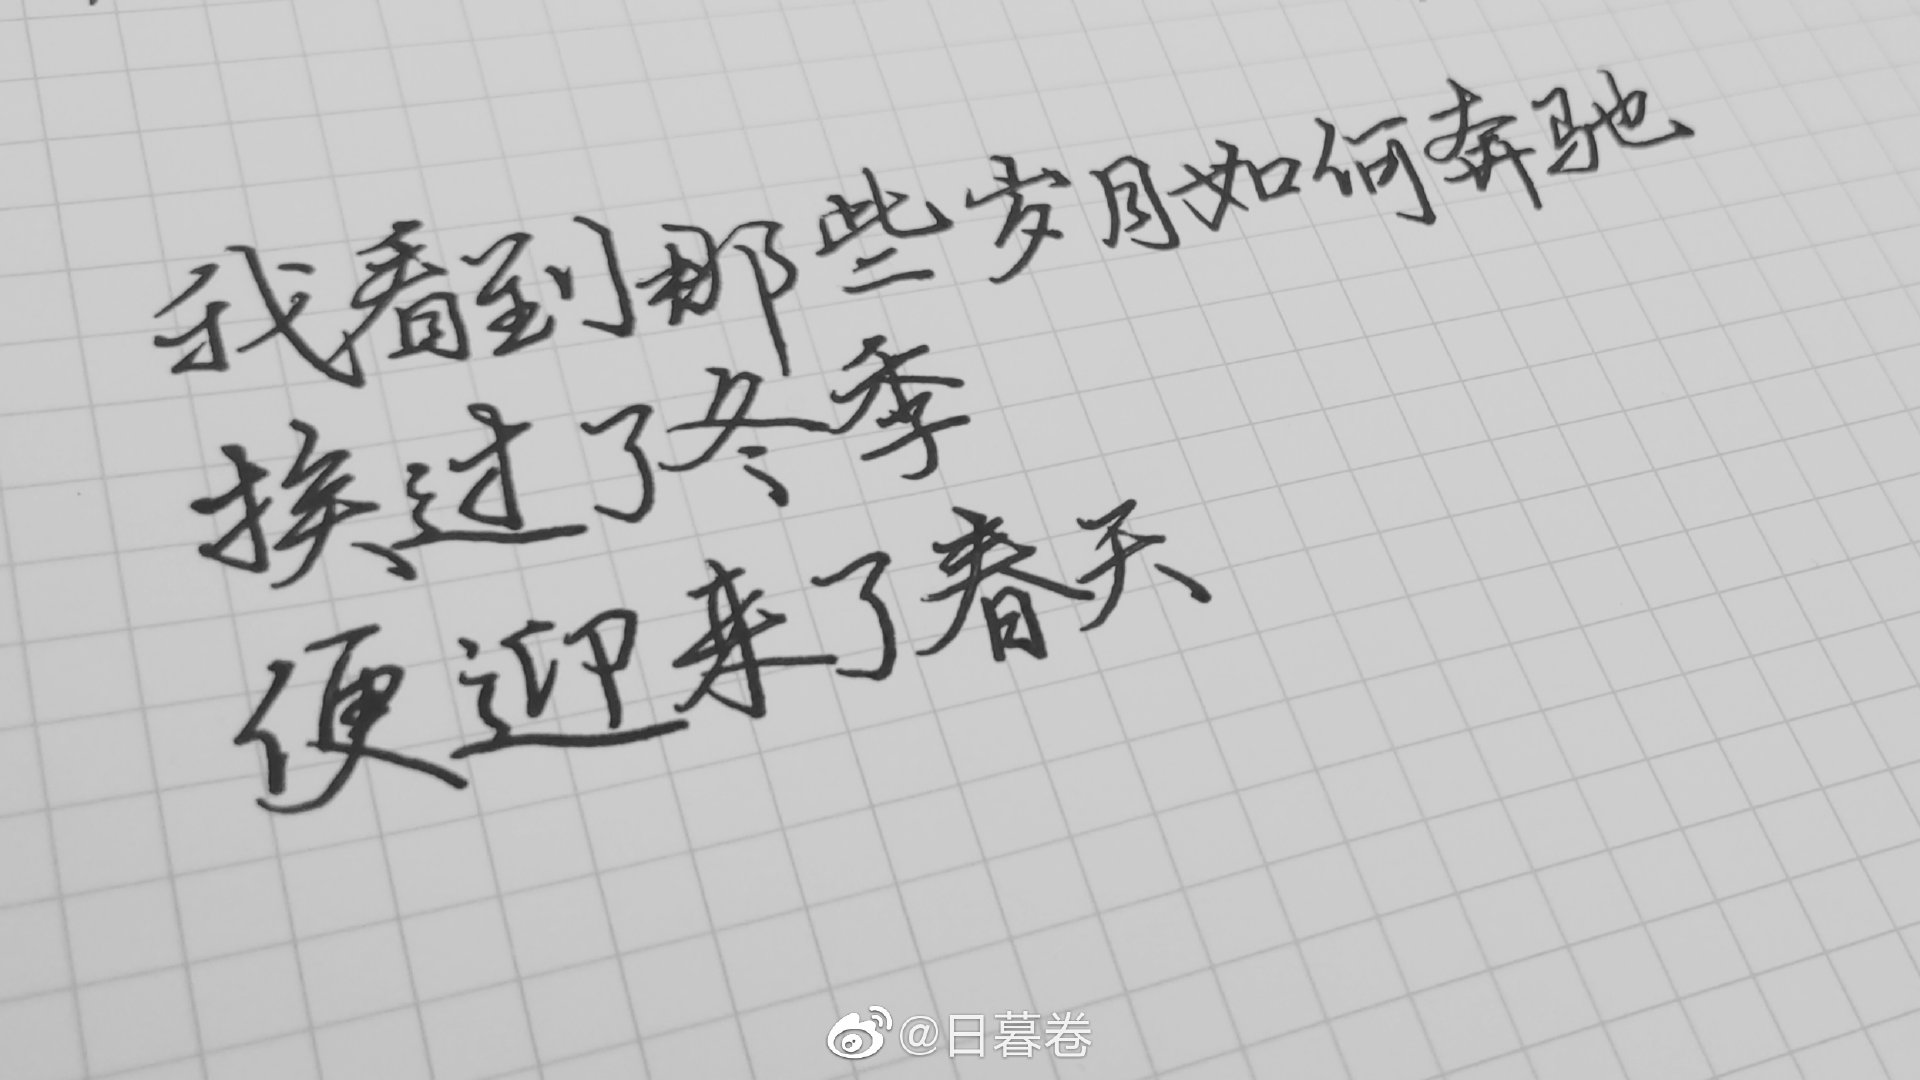 我看到那些岁月如何奔驰
挨过了冬季
便迎来了春天
@日暮卷